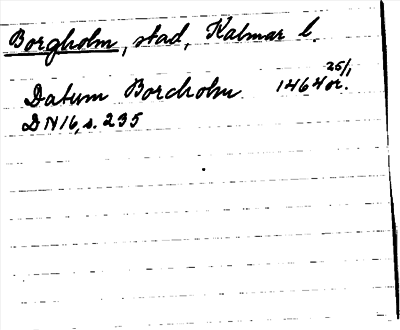 Borgholm, stad, Kalmar l.
Datum Borcholm 1464 25/1 or.
DN 16, s. 235